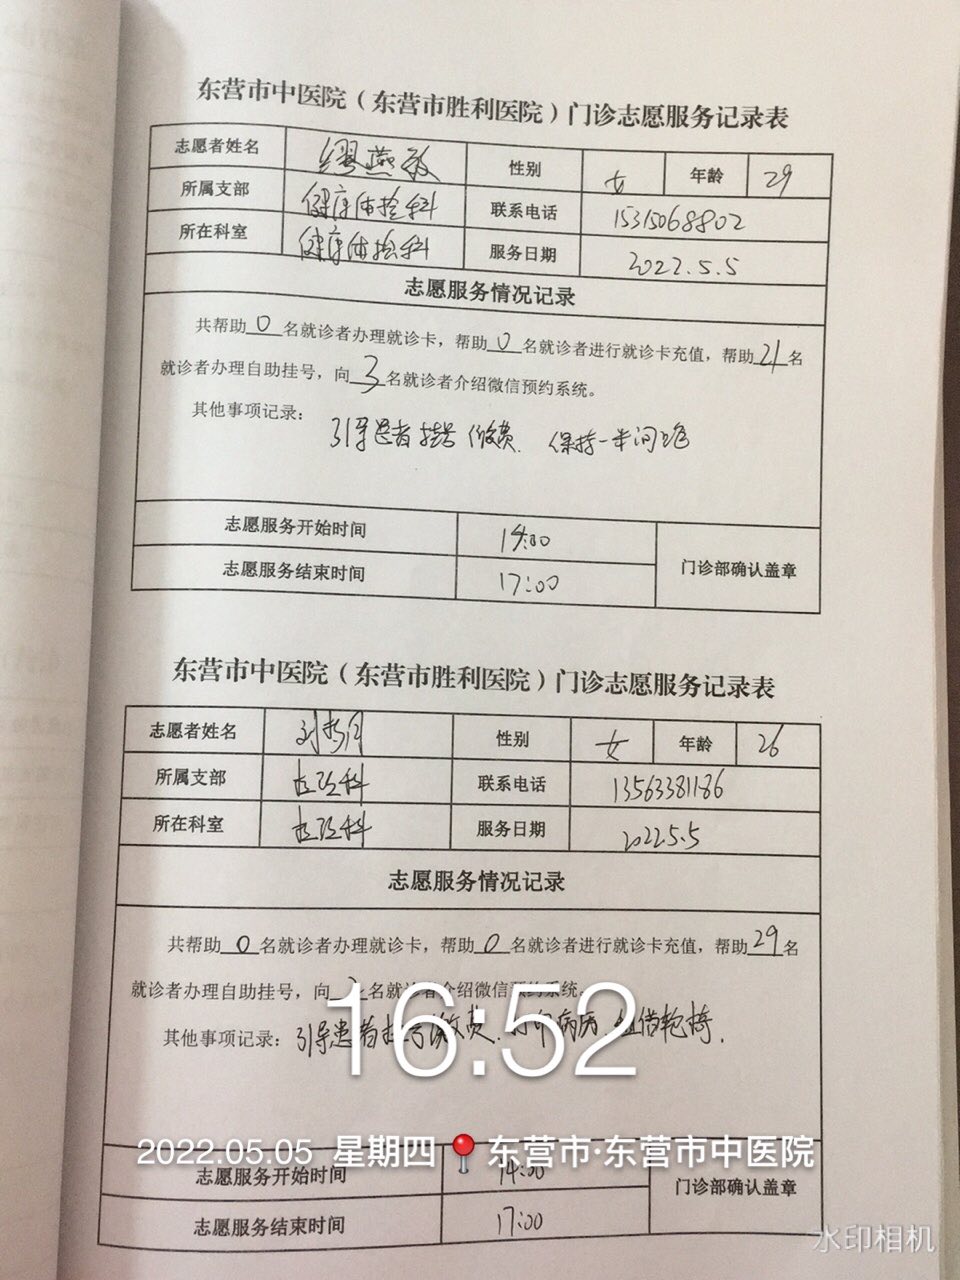 东营市中医院（东营市胜利医院）门诊志愿服务记录表
志愿者姓名 缪燕敏 性别 女 年龄 29
所属支部 健康体检科 联系电话 15315068802
所在科室 健康体检科 服务日期 2022.5.5
志愿服务情况记录
共帮助 0 名就诊者办理就诊卡，帮助 0 名就诊者进行就诊卡充值，帮助 21 名
就诊者办理自助挂号，向 3 名就诊者介绍微信预约系统。
其他事项记录：
引导患者挂号 缴费、保持一米间距
志愿服务开始时间 14:00
门诊部确认盖章
志愿服务结束时间 17:00
东营市中医院（东营市胜利医院）门诊志愿服务记录表
志愿者姓名 刘 性别 女 年龄 26
所属支部 科 联系电话 13563381186
所在科室 科 服务日期 2022.5.5
志愿服务情况记录
共帮助 0 名就诊者办理就诊卡，帮助 0 名就诊者进行就诊卡充值，帮助 29 名
就诊者办理自助挂号，向 名就诊者介绍微信预约系统。
16:52
其他事项记录：引导患者挂号缴费、打印病历、租借轮椅.
2022.05.05 星期四 东营市·东营市中医院
志愿服务开始时间 14:00
门诊部确认盖章
志愿服务结束时间 17:00
水印相机